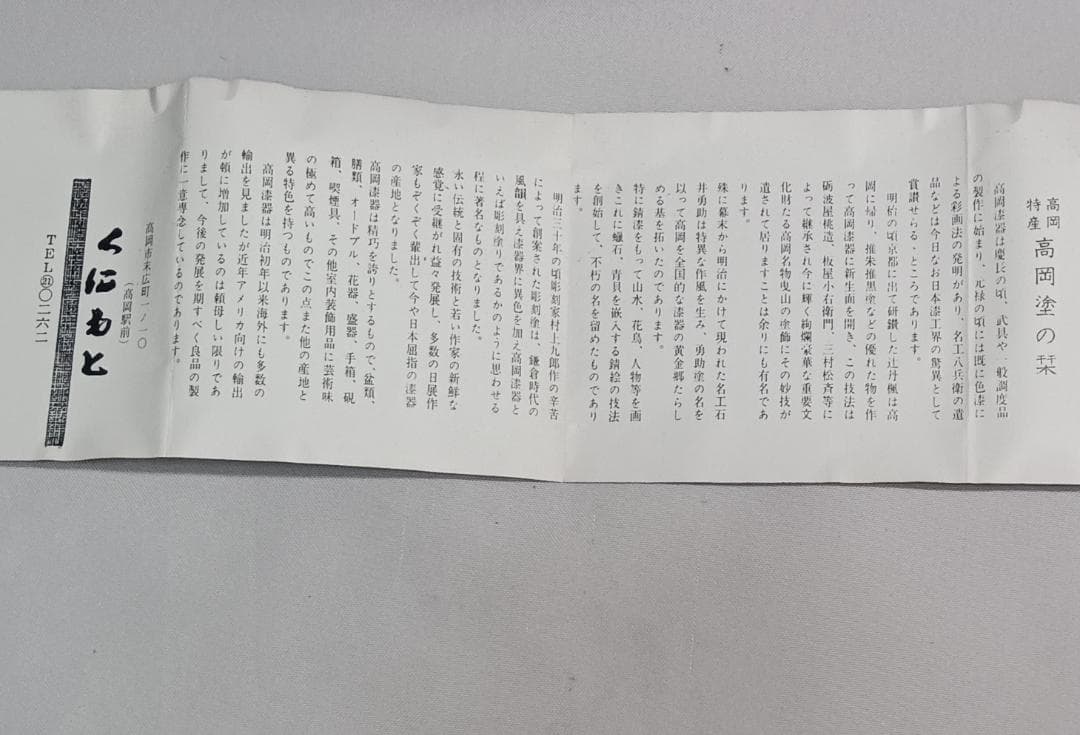 高岡特産 高岡塗の栞
高岡漆器は慶長の頃、武具や一般調度品
の製作に始まり、元禄の頃には既に色漆に
よる彩画法の発明があり、名工八兵衛の遺
品などは今日なお日本漆工界の驚異として
賞讃せらるゝところであります。
明和の頃京都に出て研鑽した辻丹楓は高
岡に帰り、推朱推黒塗などの優れた物を作
って高岡漆器に新生面を開き、この技法は
砺波屋桃造、板屋小右衛門、三村松斉等に
よって継承され今に輝く絢爛豪華な重要文
化財たる高岡名物曳山の塗飾にその妙技が
遺されて居りますことは余りにも有名であ
ります。
殊に幕末から明治にかけて現われた名工石
井勇助は特異な作風を生み、勇助塗の名を
以って高岡を全国的な漆器の黄金郷たらし
める基を拓いたのであります。
特に錆漆をもって山水、花鳥、人物等を画
きこれに蠟石、青貝を嵌入する錆絵の技法
を創始して、不朽の名を留めたものであり
ます。
明治三十年の頃彫刻家村上九郎作の辛苦
によって創案された彫刻塗は、鎌倉時代の
風韻を具え漆器界に異色を加え高岡漆器と
いえば彫刻塗りであるかのように思わせる
程に著名なものとなりました。
永い伝統と固有の技術と若い作家の新鮮な
感覚に受継がれ益々発展し、多数の日展作
家もぞくぞく輩出して今や日本屈指の漆器
の産地となりました。
高岡漆器は精巧を誇りとするもので、盆類、
膳類、オードブル、花器、盛器、手箱、硯
箱、喫煙具、その他室内装飾用品に芸術味
の極めて高いものでこの点また他の産地と
異る特色を持つものであります。
高岡漆器は明治初年以来海外にも多数の
輸出を見ましたが近年アメリカ向けの輸出
が頓に増加しているのは頼母しい限りであ
りまして、今後の発展を期すべく良品の製
作に一意専念しているのであります。
高岡市末広町一ノ一〇
(高岡駅前)
くにもと
TEL㉑〇二六二